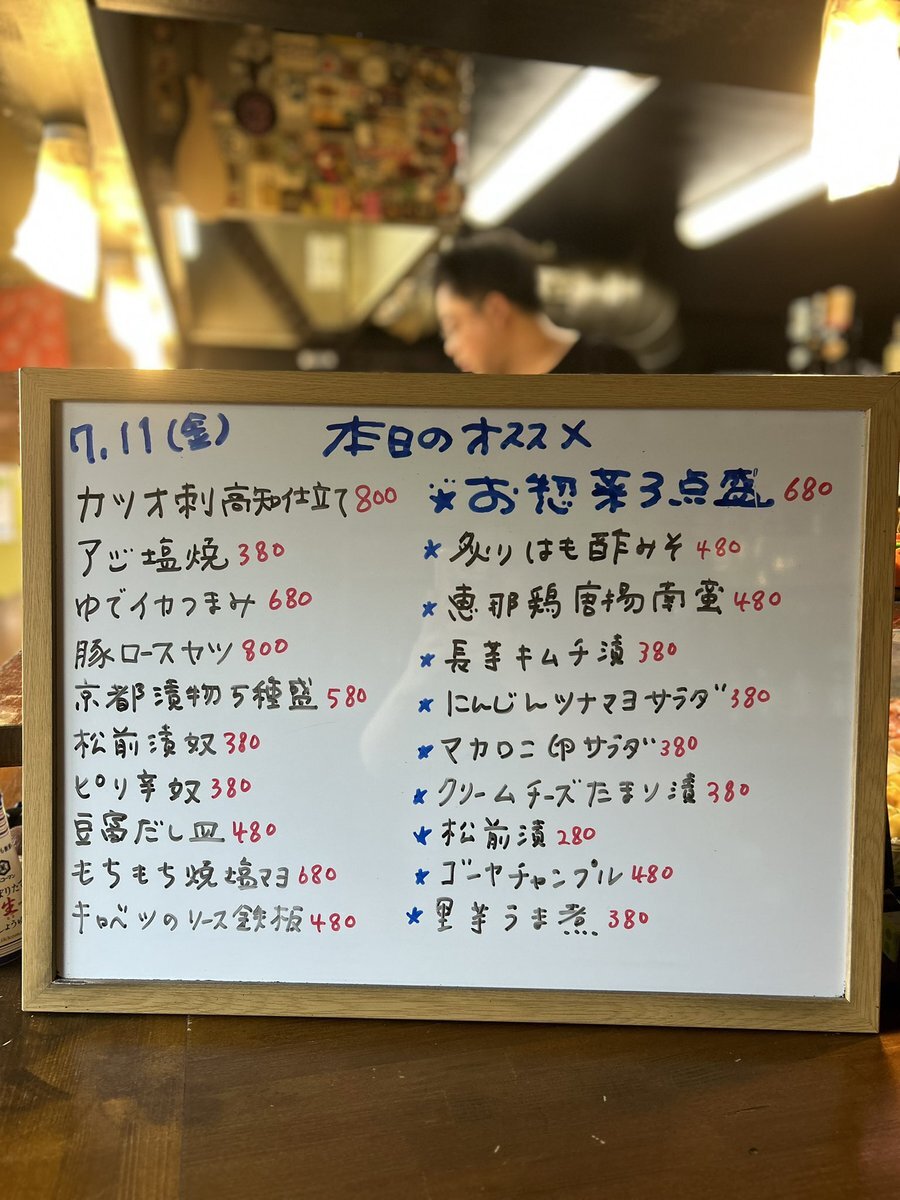 7.11(金) 本日のオススメ
カツオ刺高知仕立て800
アジ塩焼380
ゆでイカつまみ680
豚ロースカツ800
京都漬物5種盛580
松前漬奴380
ピリ辛奴380
豆富だし皿480
もちもち焼塩マヨ680
キャベツのソース鉄板480
★お惣菜3点盛680
★炙りはも酢みそ480
★恵那鶏唐揚南蛮480
★長芋キムチ漬380
★にんじんツナマヨサラダ380
★マカロニ卵サラダ380
★クリームチーズたまり漬380
★松前漬280
★ゴーヤチャンプル480
★里芋うま煮380